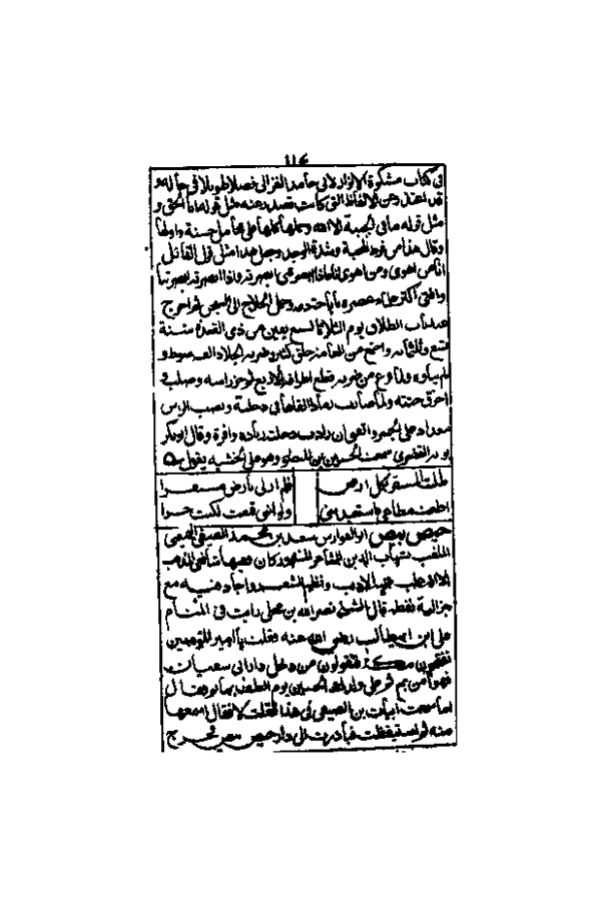 ١١٤
في كتاب مشكوة الانوار لابي حامد الغزالي فصلا طويلا في حاله و
قد اعتذر عن الالفاظ التي كانت تصدر عنه مثل قوله انا الحق و
مثل قوله ما في الجبة الا الله وحملها كلها على محامل حسنة واولها
وقال هذا من فرط المحبة وشدة الوجد وجعل هذا مثل قول القائل
انا من اهوى ومن اهوى انا فاذا ابصرتني ابصرته واذا ابصرته ابصرتنا
وافتى اكثر علماء عصره باباحة دمه وحمل الحلاج الى السجن ثم اخرج
عند باب الطاق يوم الثلاثا لسبع بقين من ذي القعدة سنة
تسع وثلثمائة واجتمع من العامة خلق كثير وضربه الجلاد الف سوط و
لم يتاوه ولما فرغ من ضربه قطع اطرافه الاربع ثم حز راسه وصلب
احرق جثته ولما صارت رمادا القاها في دجلة ونصب الراس
ببغداد على الجسر واتفق ان زادت دجلة زيادة وافرة وقال ابو بكر
سمعت الحسين بن المنصور وهو على الخشبة يقول
طلبت المستقر بكل ارض فلم ار لي بارض مستقرا
اطعت مطامعي فاستعبدتني ولو اني قنعت لكنت حرا
حيص بيص ابو الفوارس سعد بن محمد الصيفي التميمي
الملقب شهاب الدين الشاعر المشهور كان فقيها شافعي المذهب
الا انه غلب عليه الادب ونظم الشعر واجاد فيه مع
جزالة لفظه قال الشيخ نصر الله بن مجلي رايت في المنام
علي ابن ابيطالب رضي الله عنه فقلت يا امير المؤمنين
تفتحون مكة فتقولون من دخل دار ابي سفيان
فهو آمن ثم يتم على ولدك الحسين يوم الطف ما تم فقال
اما سمعت ابيات بن الصيفي في هذا فقلت لا فقال اسمعها
منه ثم استيقظت فبادرت الى دار حيص بيص فخرج